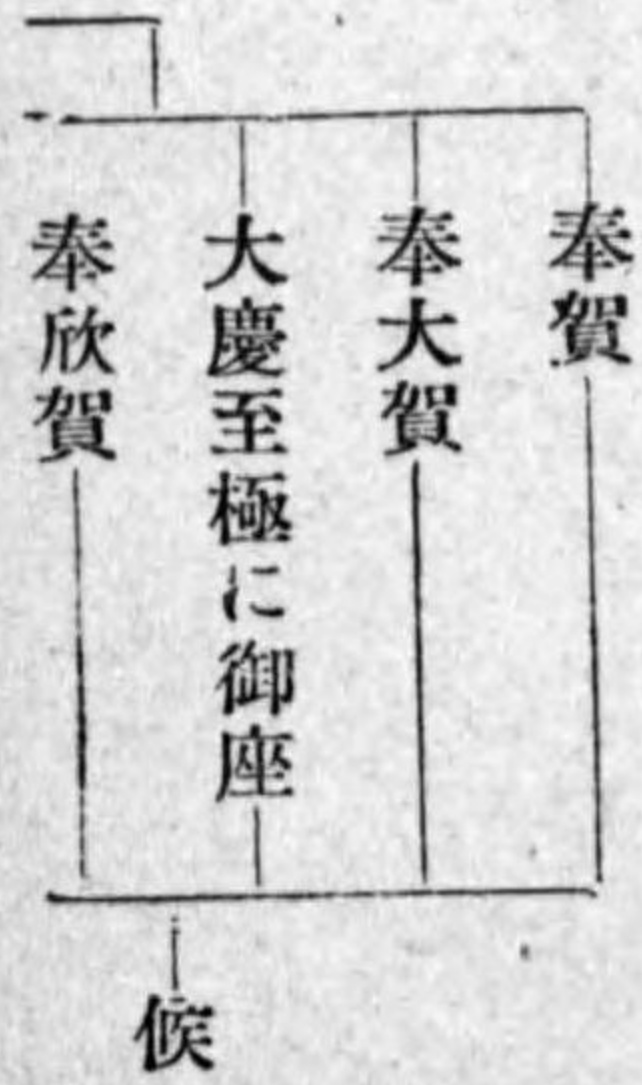 奉賀
奉大賀
大慶至極に御座
奉欣賀
候